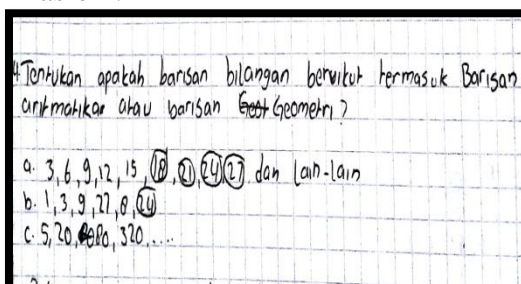 4. Tentukan apakah barisan bilangan berikut termasuk Barisan
aritmatika atau barisan Geometri?
a. 3, 6, 9, 12, 15, 18, 21, 24, 27 dan lain-lain
b. 1, 3, 9, 27, 8, 24
c. 5, 20, 80, 320, ....